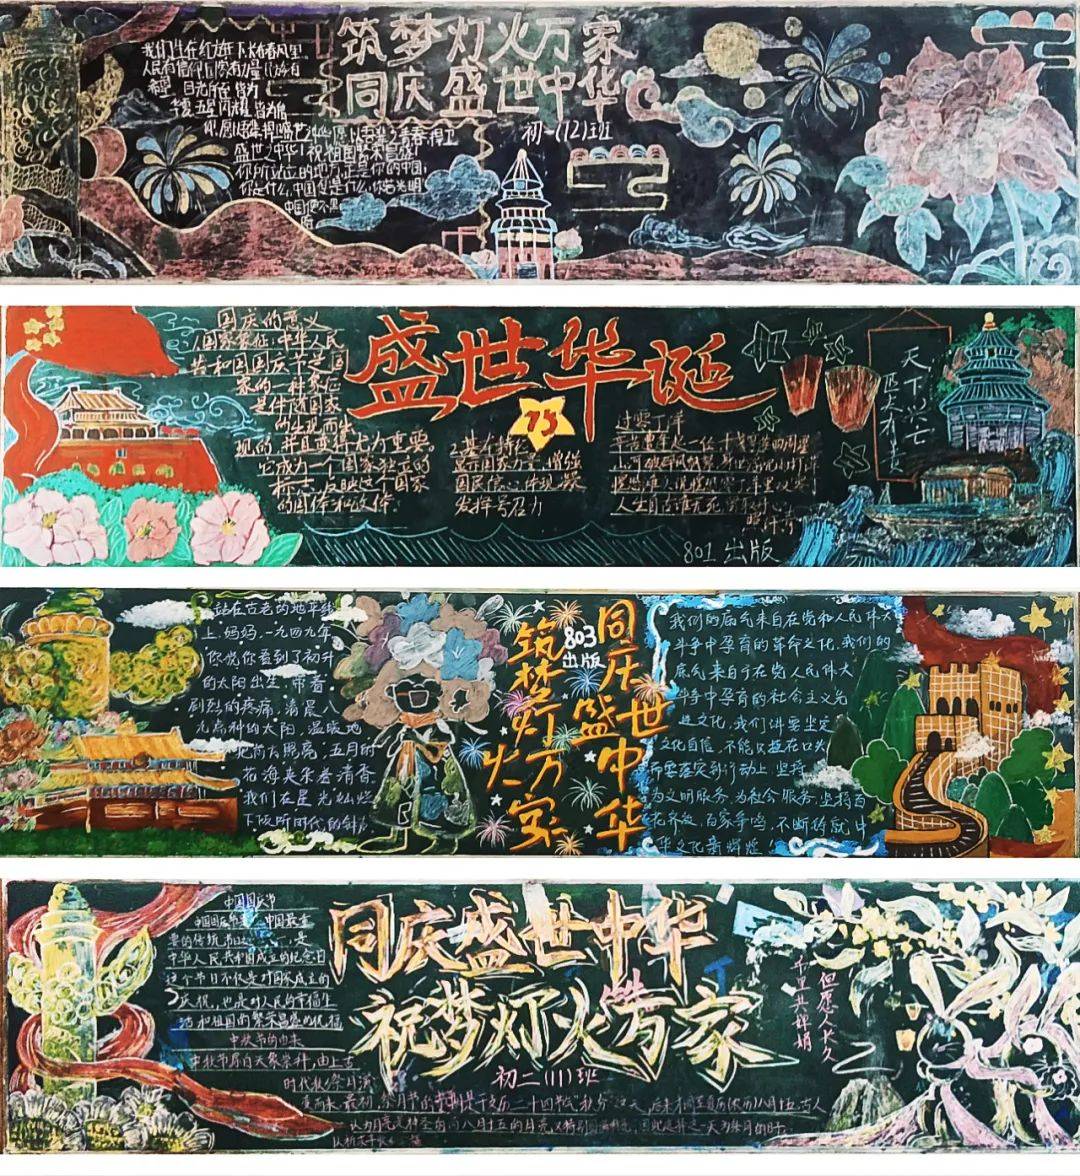 筑梦灯火万家
同庆盛世中华
初一(12)班
我们生在红旗下,长在春风里。
人民有信仰,国家有力量
目光所至皆为
华夏,五星闪耀皆为信
盛世之中华!祝祖国繁荣昌盛!
你所站立的地方,正是你的中国,
你是什么,中国便是什么,你若光明
中国便不黑
盛世华诞
75
国庆的意义
1.国家象征:中华人民
共和国国庆节是国
家的一种象征
是伴随国家
的出现而出
现的,并且变得尤为重要。
它成为一个国家独立的
标志,反映这个国家
的国体和政体。
2.基本特征
显示国家力量,增强
国民信心,体现凝聚
发挥号召力
过零丁洋
辛苦遭逢起一经,干戈寥落四周星
人生自古谁无死
801出版
天下兴亡
匹夫有责
站在古老的地平线
上,妈妈,一九四九年
你说你看到了初升
的太阳出生,带着
剧烈的疼痛,清晨八
九点钟的太阳,温暖地
花海夹杂着清香
我们在星光灿烂
下倾听时代的钟
筑梦灯火万家
803
出版
同庆盛世中华
我们的底气来自在党和人民伟大
斗争中孕育的革命文化,我们的
底气来自于在党人民伟大
斗争中孕育的社会主义先
进文化,我们讲要坚定
文化自信,不能只挂在口头
而要落实到行动上,坚持
为文明服务,为社会服务,坚持百
花齐放,百家争鸣,不断铸就中
华文化新辉煌!
同庆盛世中华
祝梦灯火万家
初二(11)班
中国国庆节
中国国庆节是 中国最重
要的传统节日之一,是
中华人民共和国成立的纪念日
这个节日不仅是对国家成立的
庆祝,也是对人民的幸福生
活和祖国的繁荣昌盛的祝福
中秋节的由来
中秋节源自天象崇拜,由上古
时代秋夕祭月演
变而来。最初“祭月节”的节期是干支历二十四节气“秋分”这天,后来才调至夏历(农历)八月十五,古人
但愿人长久
千里共婵娟